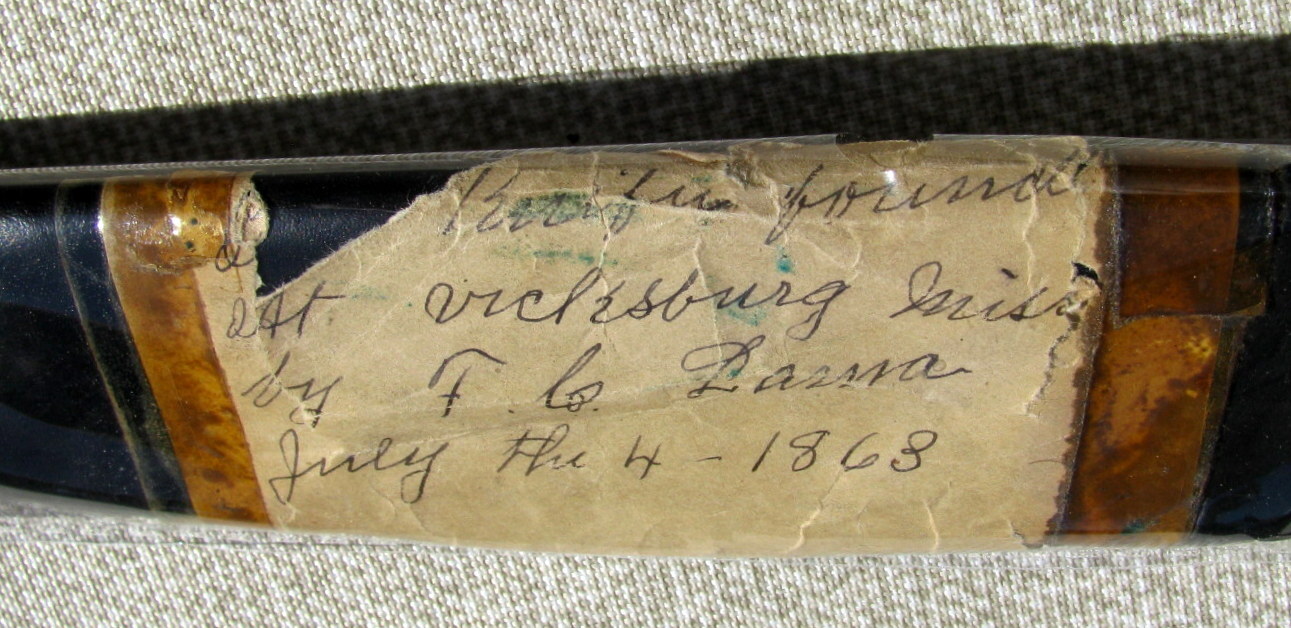 Knife found
at Vicksburg Miss
by F. C. Danna
July the 4 - 1863